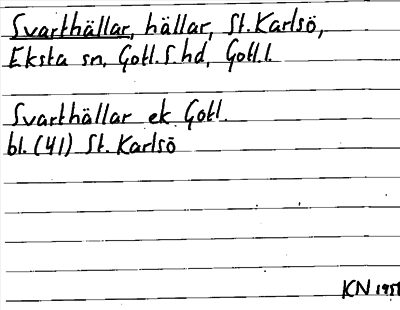 Svarthällar, hällar, St. Karlsö,
Eksta sn, Gotl. S. hd, Gotl. l.
Svarthällar ek Gotl.
bl. (41) St. Karlsö
KN